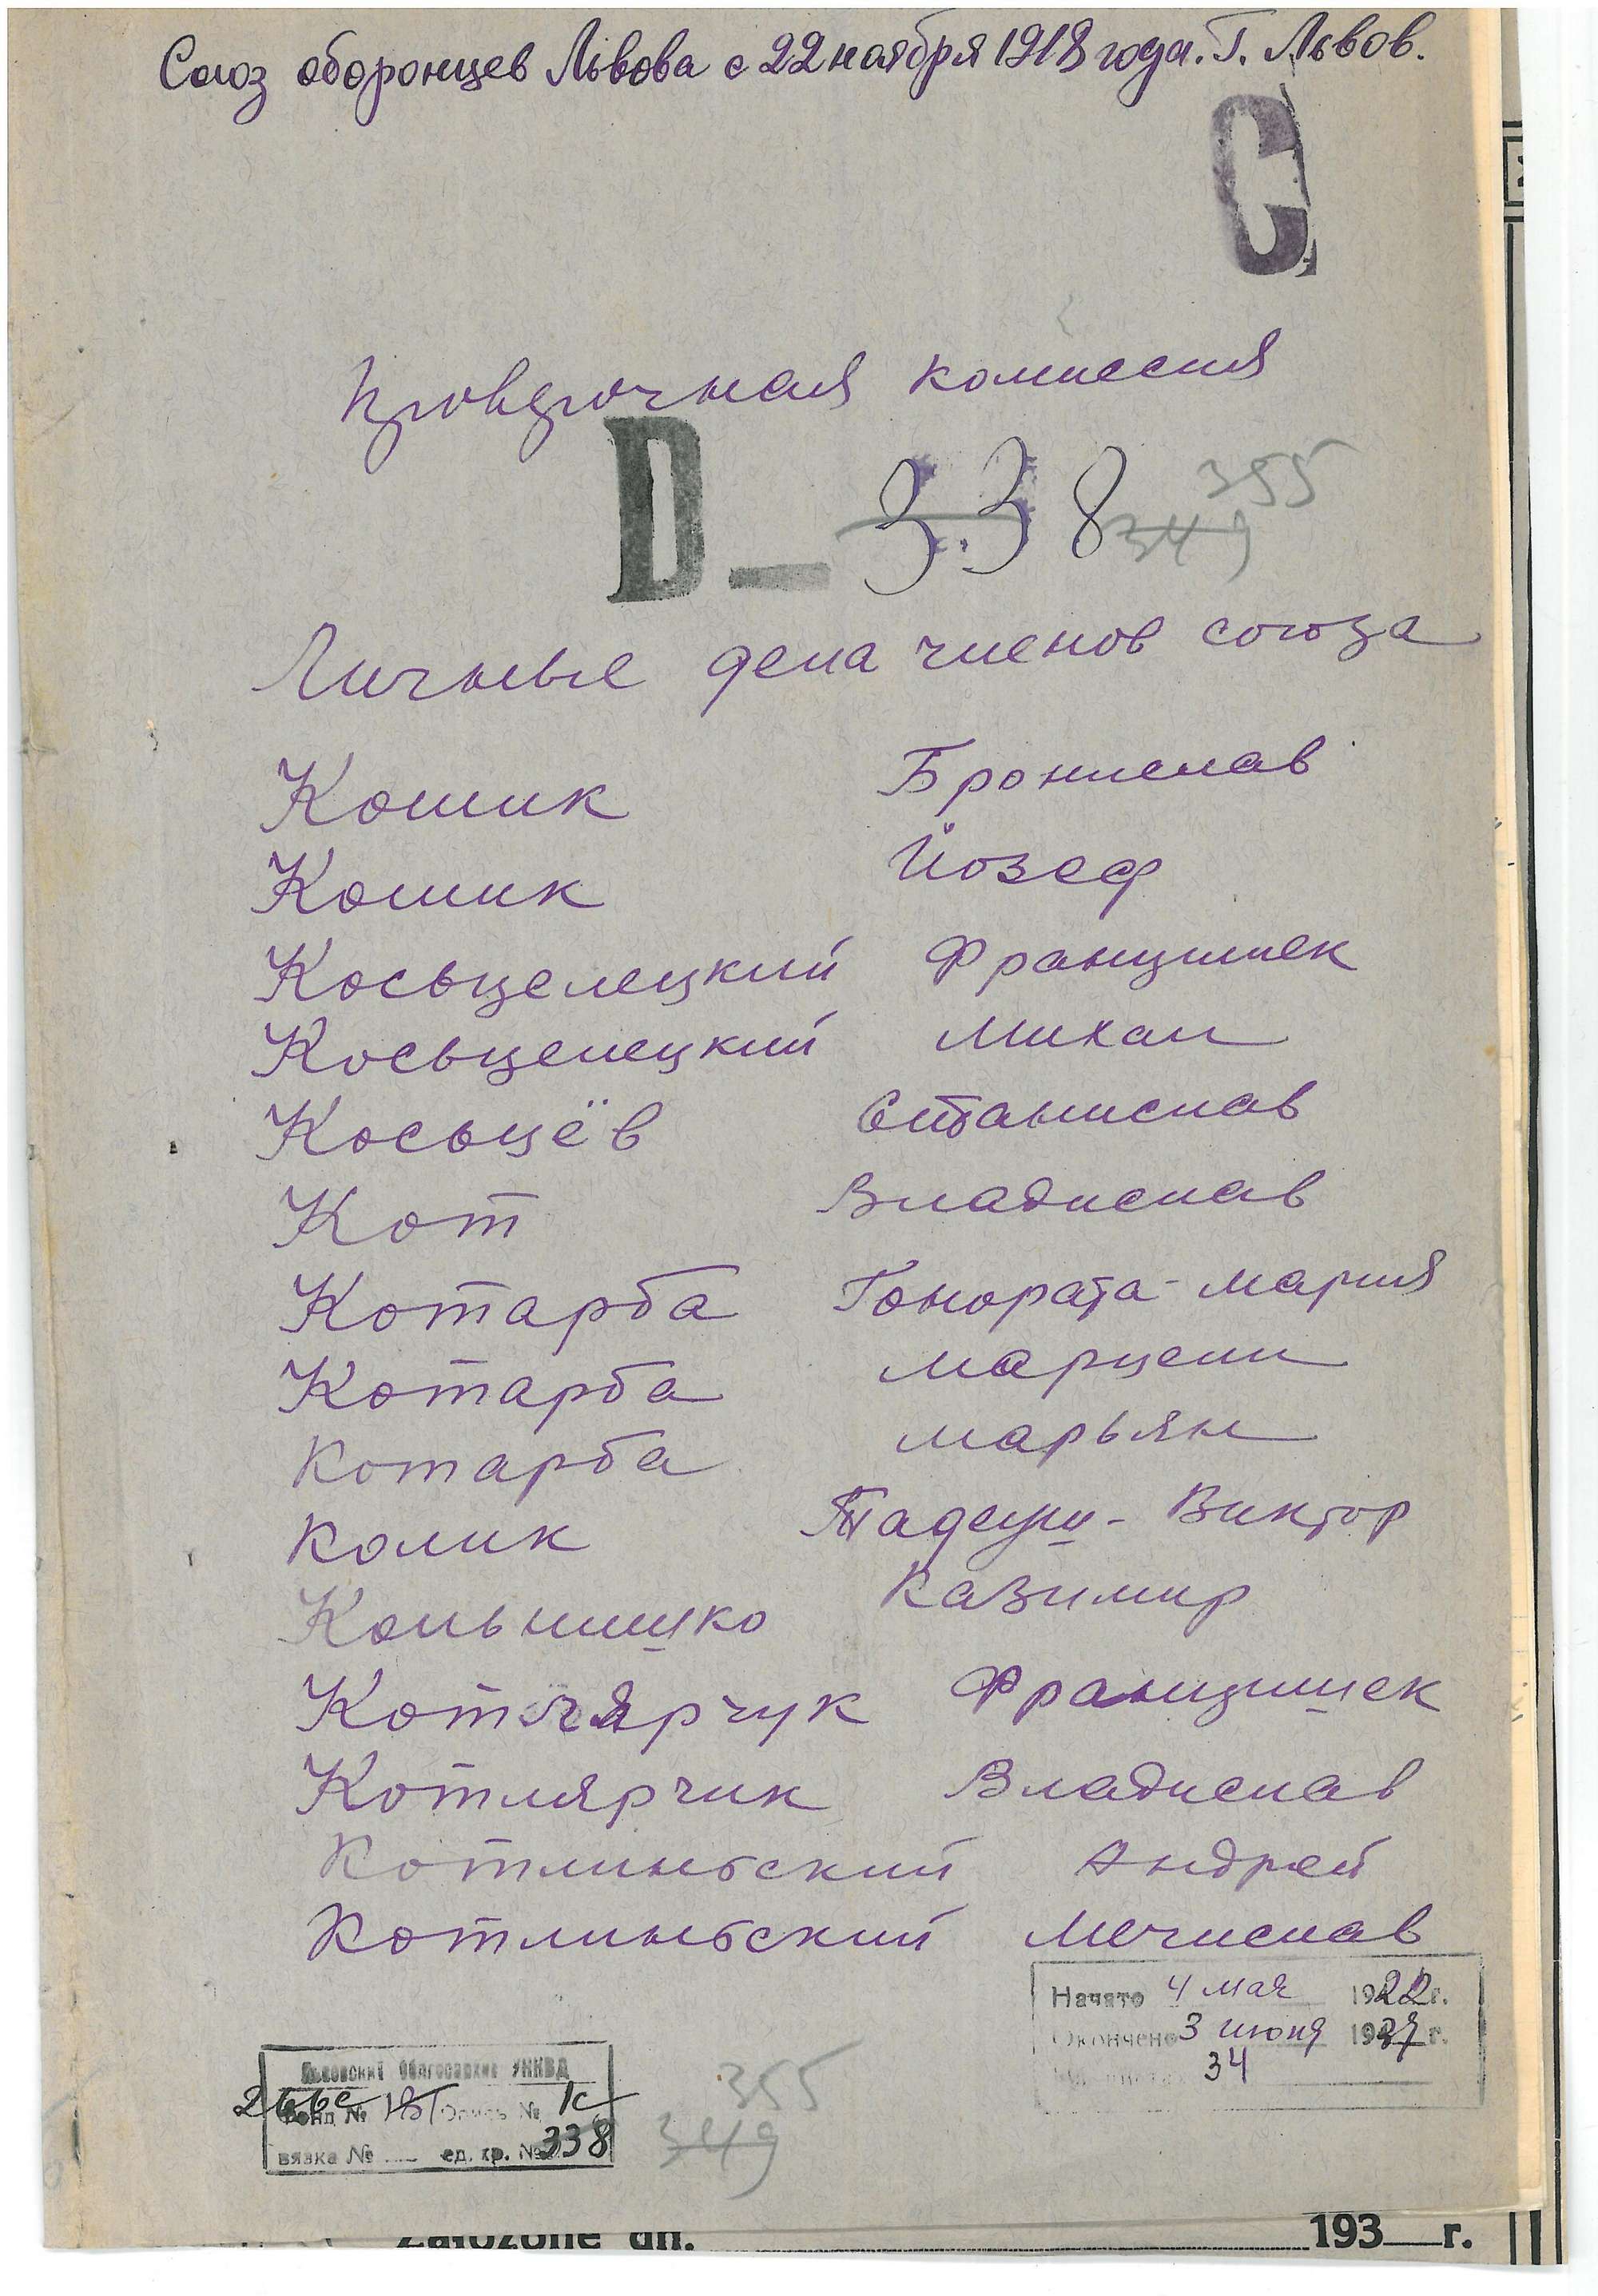 Союз оборонцев Львова с 22 ноября 1918 года. Г. Львов.
С
Проверочная комиссия
D — 338 355
349
Личные дела членов союза
Кошик Бронислав
Кошик Йозеф
Косьцелецкий Францишек
Косьцелецкий Михал
Косьцёв Станислав
Кот Владислав
Котарба Гонората-Мария
Котарба Марцели
Котарба Марьян
Колик Тадеуш-Виктор
Казимир
Котлярчук Францишек
Котлярчик Владислав
Котлиньский Андрей
Котлиньский Мечислав
Начато 4 мая 1922 г.
Окончено 3 июня 1939 г.
34
Львовский Облгосархив УНКВД
266с Фонд № 181 Опись № 1с
вязка № — ед. хр. № 338
355
349
Założone dn. 193 г.